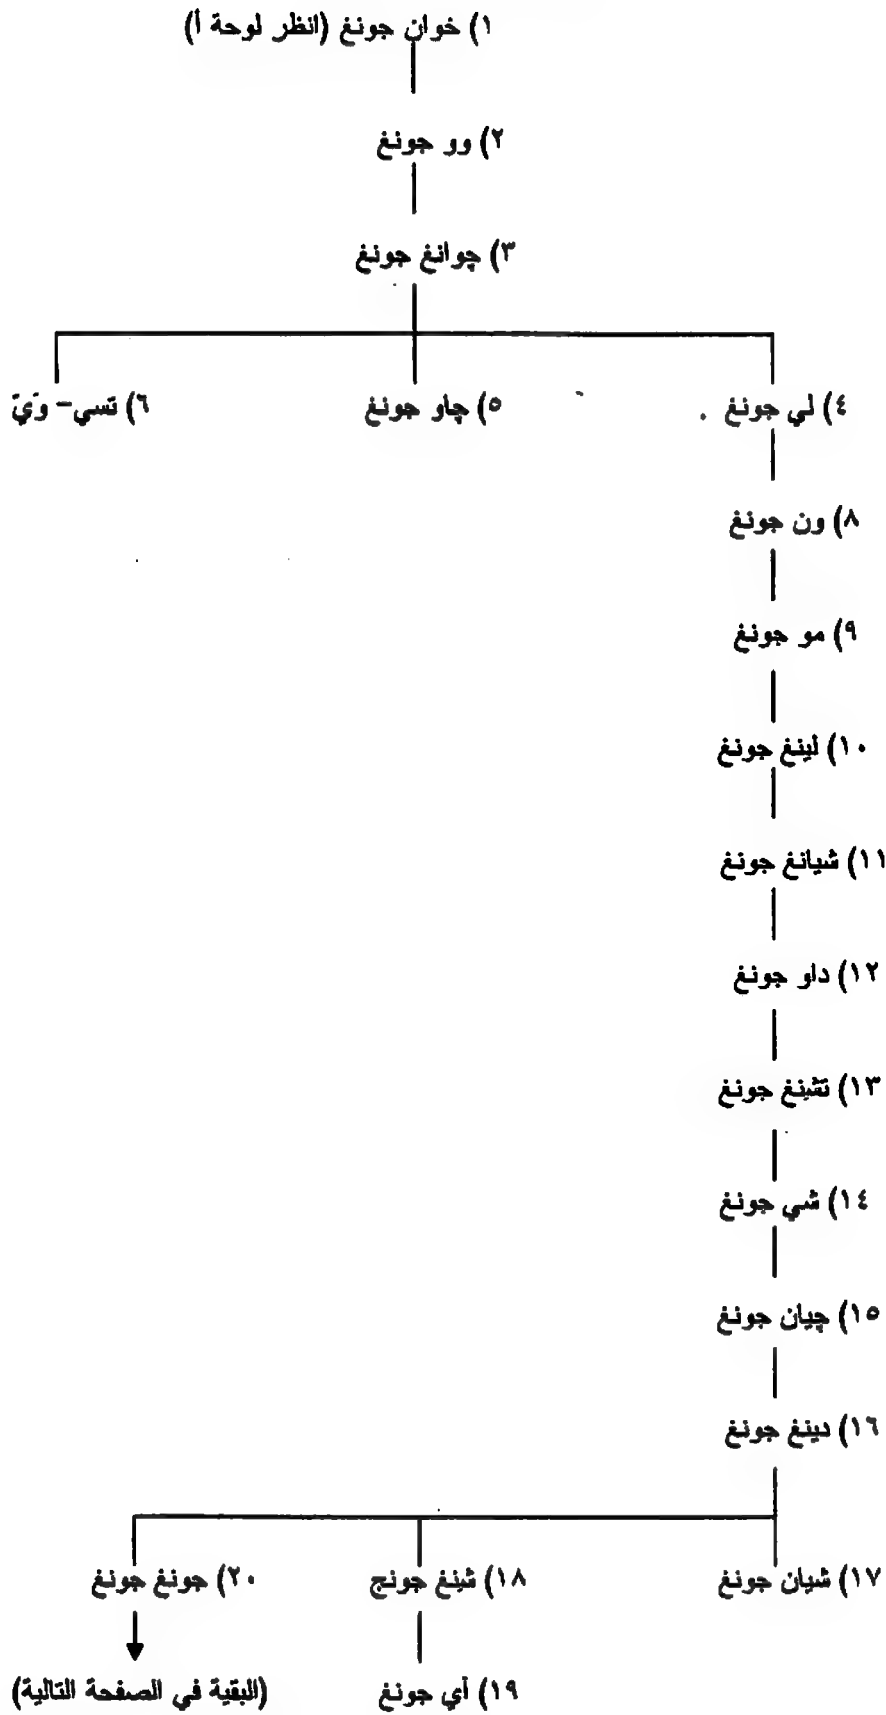 ١) خوان جونغ (انظر لوحة أ)
٢) وو جونغ
٣) چوانغ جونغ
٤) لي جونغ
٥) چاو جونغ
٦) تسي- وَيّ
٨) ون جونغ
٩) مو جونغ
١٠) لينغ جونغ
١١) شيانغ جونغ
١٢) داو جونغ
١٣) تشِنغ جونغ
١٤) شي جونغ
١٥) چيان جونغ
١٦) دينغ جونغ
١٧) شيان جونغ
١٨) شِنغ جونج
٢٠) جونغ جونغ
١٩) أي جونغ
(البقية في الصفحة التالية)